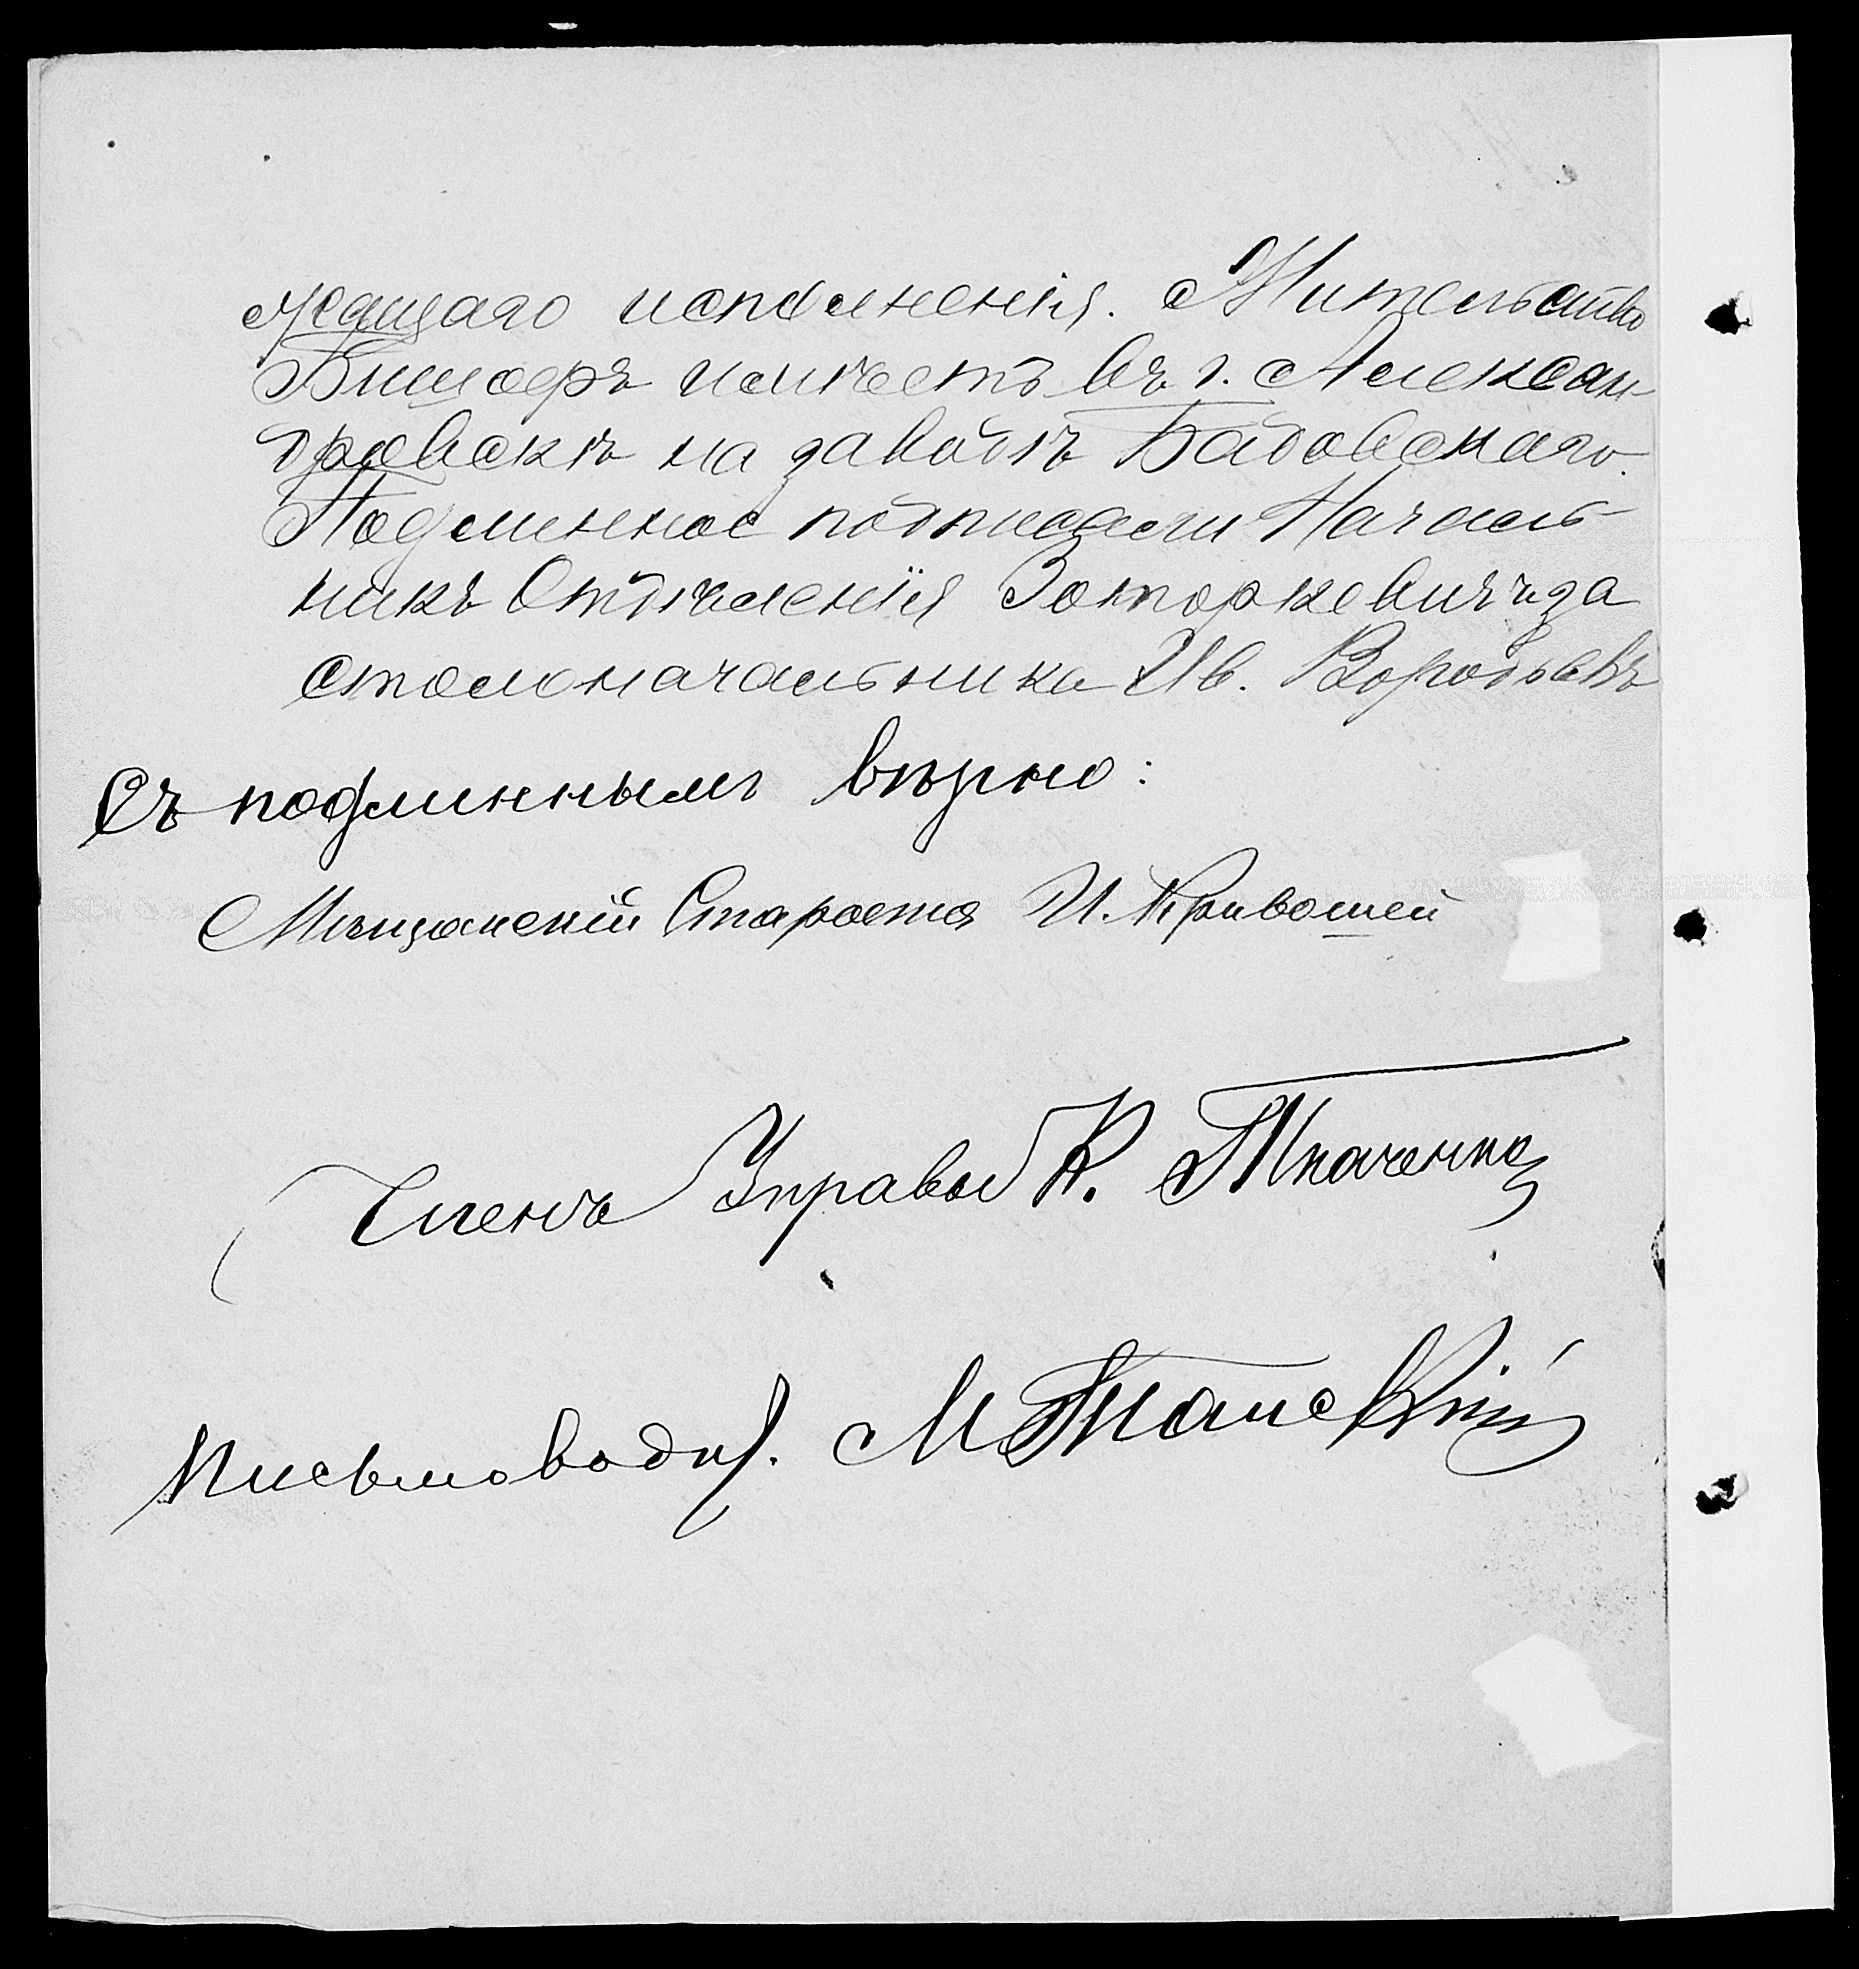 жащаго исполненія. Жительство
Бишоеръ имѣетъ въ г. Алексан-
дровскѣ на заводѣ Бадовскаго.
Подлинное подписали Началь-
никъ Отдѣленія Заторжевичъ за
столоначальника Ив. Воробьевъ
Съ подлиннымъ вѣрно:
Мѣщанскій Староста И. Кривошей
Членъ Управы К. Ткаченко
Письмовод. М.